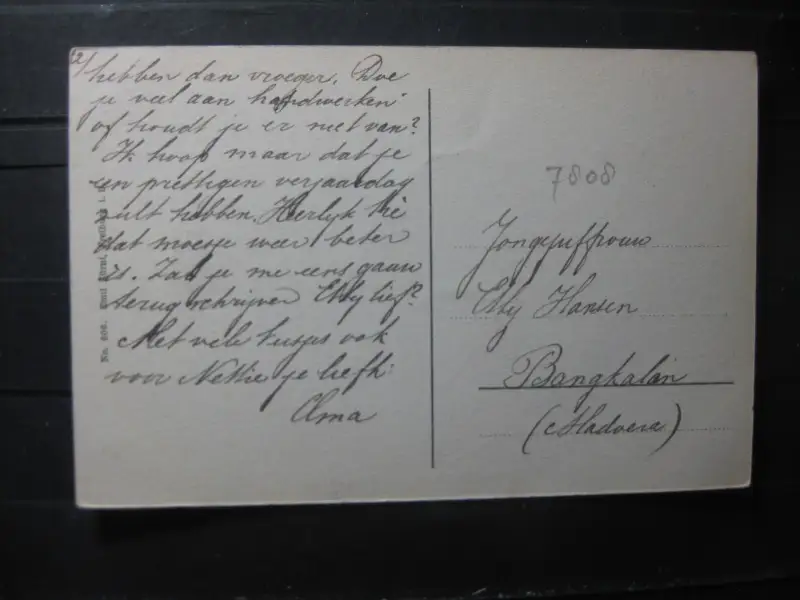 2/
hebben dan vroeger. Doe
je veel aan handwerken
of houdt je er niet van?
Ik hoop maar dat je
een prettigen verjaardag
zult hebben. Heerlijk hè
dat moesje weer beter
is. Zal je me eens gauw
terug schrijven Elly lief?
Met vele kusjes ook
voor Nettie je liefh:
Alma
7808
Jongejuffrouw
Elly Hansen
Bangkalan
(Madoera)
No. 606.